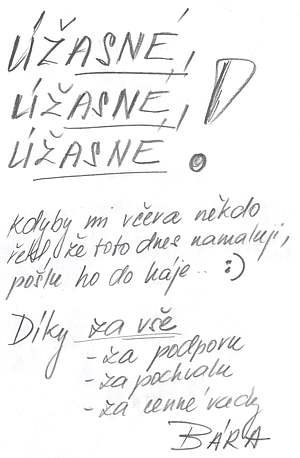 ÚŽASNÉ,
ÚŽASNÉ,
ÚŽASNÉ!
Kdyby mi včera někdo
řekl, že toto dnes namaluji,
pošlu ho do háje.. :)
Díky za vše
- za podporu
- za pochvalu
- za cenné rady
BÁRA